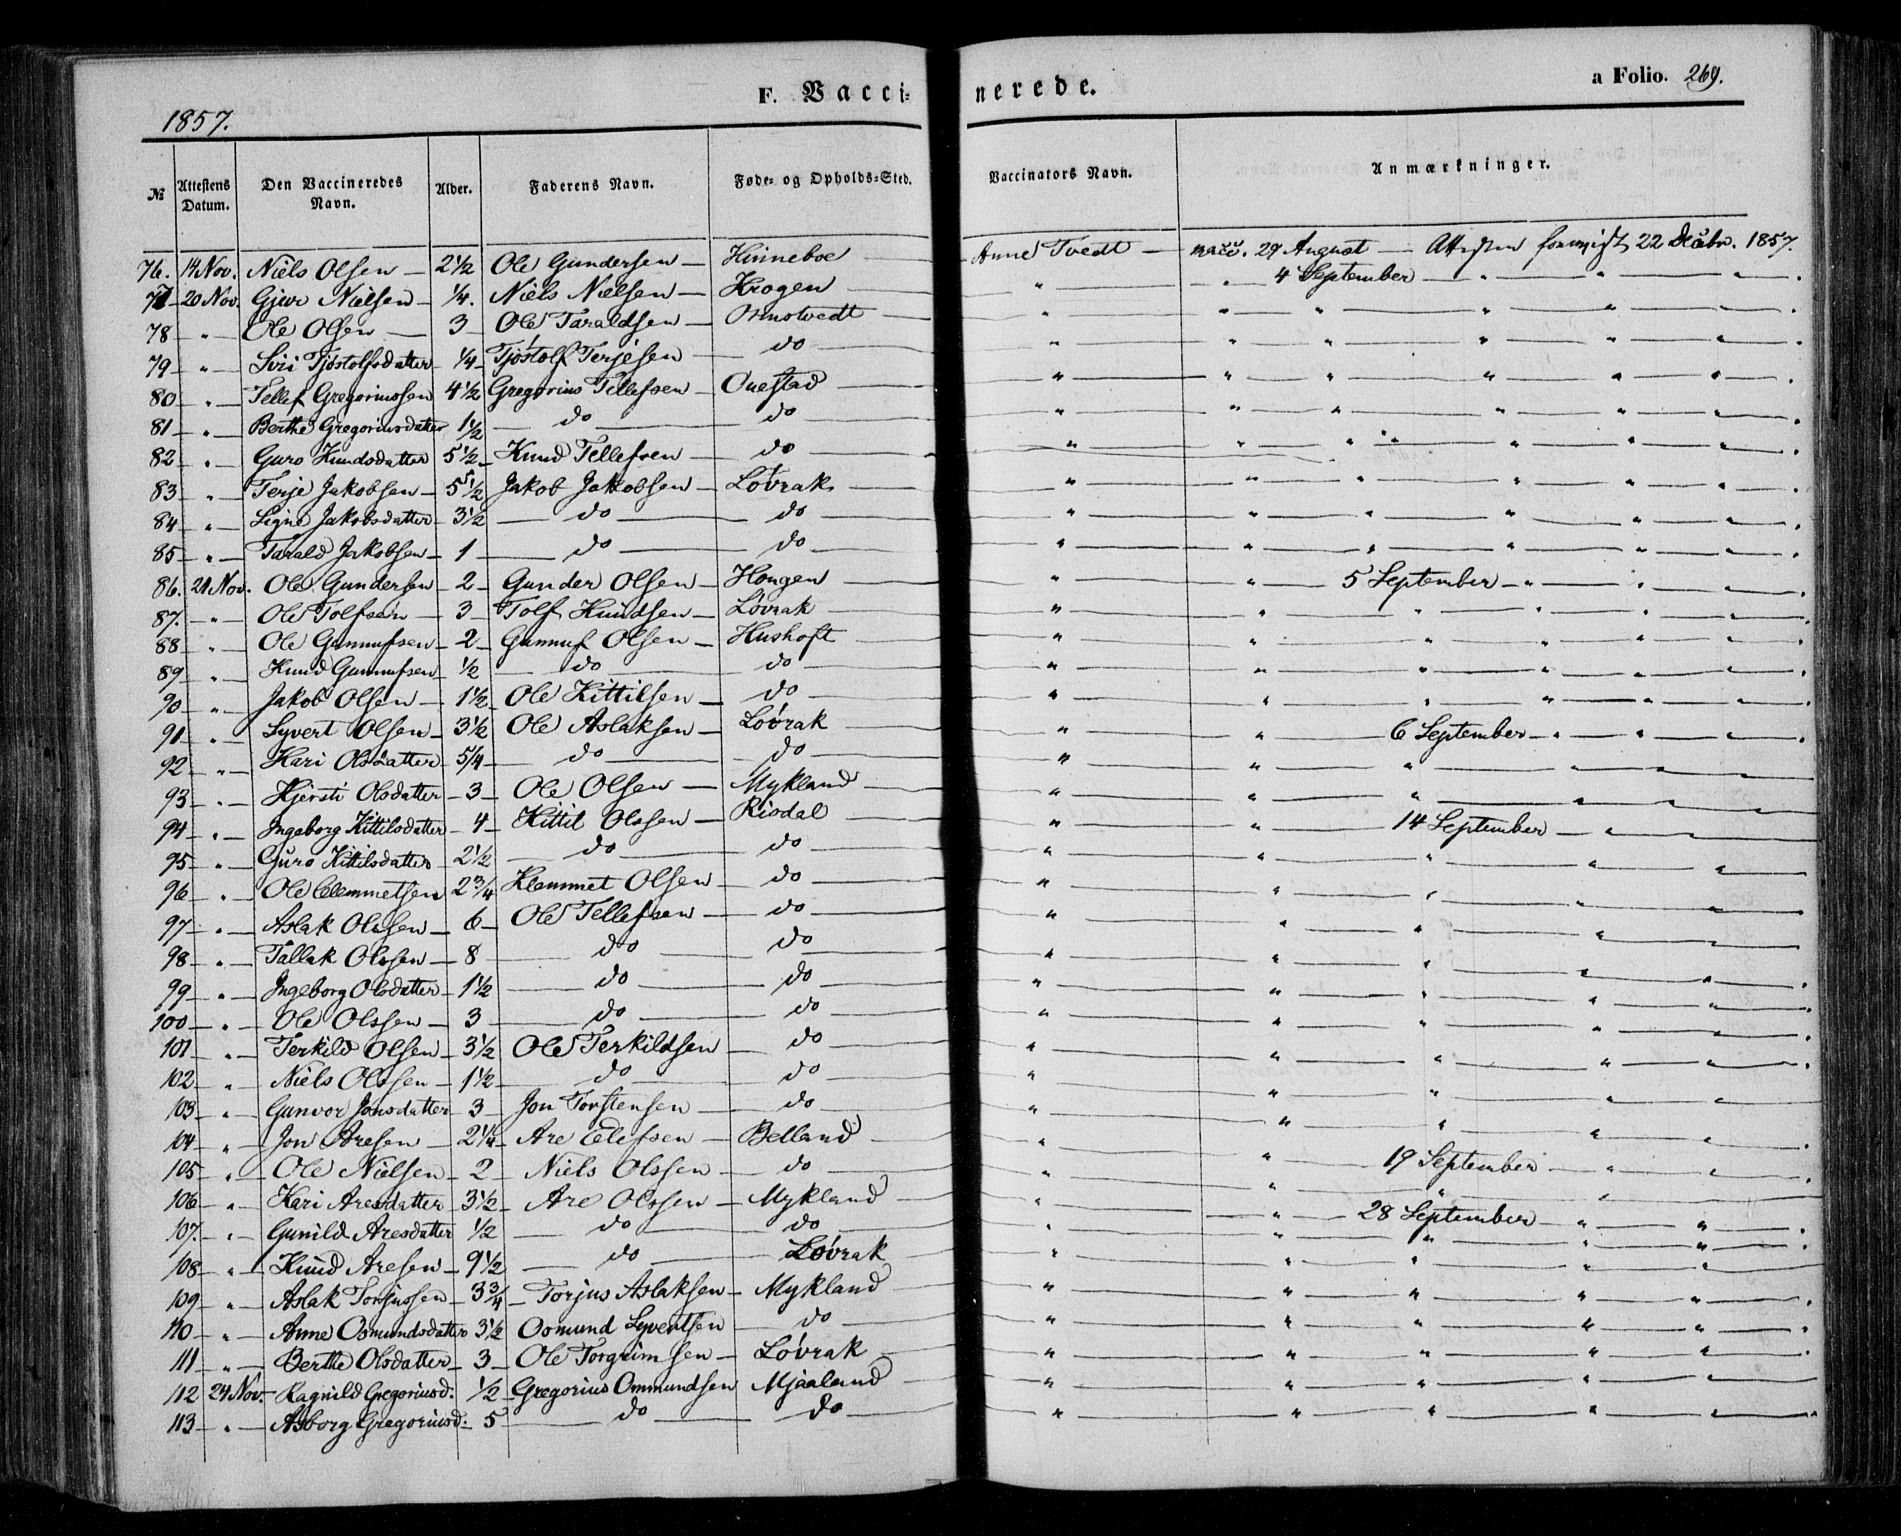 F. Vacci- nerede. a Folio. 269.
1857.
№ Attestens Datum. Den Vaccineredes Navn. Alder. Faderens Navn. Føde- og Opholds-Sted. Vaccinators Navn. Anmærkninger.
76. 14 Nov. Niels Olsen 2 1/2 Ole Gundersen Hinneboe Anne Tvedt vacc. 29 August 22 Decbr. 1857.
77 20 Nov. Gjur Nielsen 1/4. Niels Nielsen Krogen " " 4 September " " "
78 " Ole Olsen 3 Ole Taraldsen " " " " " "
79 " Siri Tjøstolfsdatter 1/4 Tjøstolf Terjesen do " " " " " "
80 " Tellef Gregoriussen 4 1/2 Gregorius Tellefsen Ouestad " " " " " "
81 " Berthe Gregoriusdatter 1 1/2 do do " " " " " "
82 " Guro Knudsdatter 5 1/2 Knud Tellefsen do " " " " " "
83 " Terje Jakobsen 5 1/2 Jakob Jakobsen Løvrak " " " " " "
84 " Signe Jakobsdatter 3 1/2 do do " " " " " "
85 " Tarald Jakobsen 1 do do " " " " " "
86. 21 Nov. Ole Gundersen 2 Gunder Olsen Hougen " " 5 September " " "
87. " Ole Tolfsen 3 Tolf Knudsen Løvrak " " " " " "
88 " Ole Gunnufsen 2 Gunnuf Olsen Hushoft " " " " " "
89 " Knud Gunnufsen 1/2 do do " " " " " "
90 " Jakob Olsen 1 1/2 Ole Kittilsen do " " " " " "
91 " Syvert Olsen 3 1/2 Ole Aslaksen Løvrak " " 6 September " " "
92 " Kari Olsdatter 5/4 do do " " " " " "
93 " Kjersti Olsdatter 3 Ole Olsen Mykland " " " " " "
94 " Ingeborg Kittilsdatter 4 Kittil Olssen Risdal " " 14 September " "
95 " Guro Kittilsdatter 2 1/2 do do " " " " "
96 " Ole Clemmetsen 2 3/4 Klemmet Olsen do " " " " "
97 " Aslak Olssen 6 Ole Tellefsen do " " " "
98 " Tallak Olssen 8 do do " " " " "
99 " Ingeborg Olsdatter 1 1/2 do do " " " " "
100 " Ole Olssen 3 do do " " " " "
101 " Terkild Olsen 3 1/2 Ole Terkildsen do " " " " "
102 " Niels Olssen 1 1/2 do do " " " " "
103 " Gunvor Jonsdatter 3 Jon Torstensen do " " " " "
104 " Jon Aresen 2 1/4 Are Elefsen Belland " " 19 September " "
105 " Ole Nielsen 2 Niels Olssen do " " " " "
106 " Kari Aresdatter 3 1/2 Are Olssen Mykland " " 28 September " "
107. " Gunild Aresdatter 1/2 do do " " " " "
108 " Knud Aresen 9 1/2 do Løvrak " " " " "
109 " Aslak Torjussen 3 3/4 Torjus Aslaksen Mykland " " " " "
110 " Anne Osmundsdatter 3 1/2 Osmund Syvertsen do " " " " "
111 " Berthe Olsdatter 3 Ole Torgrimsen Løvrak " " " " "
112 24 Nov. Ragnild Gregoriusd. 1/2 Gregorius Ommundsen Mjaaland " " " " "
113 " Asborg Gregoriusd. 5 do do " " " " "